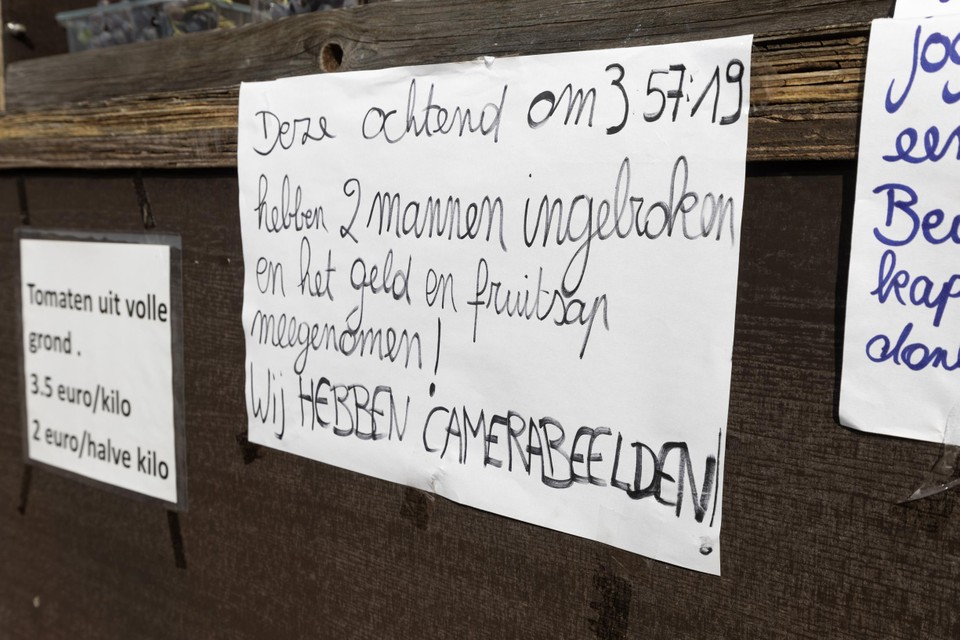 Tomaten uit volle
grond .
3.5 euro/kilo
2 euro/halve kilo
Deze ochtend om 3:57:19
hebben 2 mannen ingebroken
en het geld en fruitsap
meegenomen!
Wij HEBBEN CAMERABEELDEN!